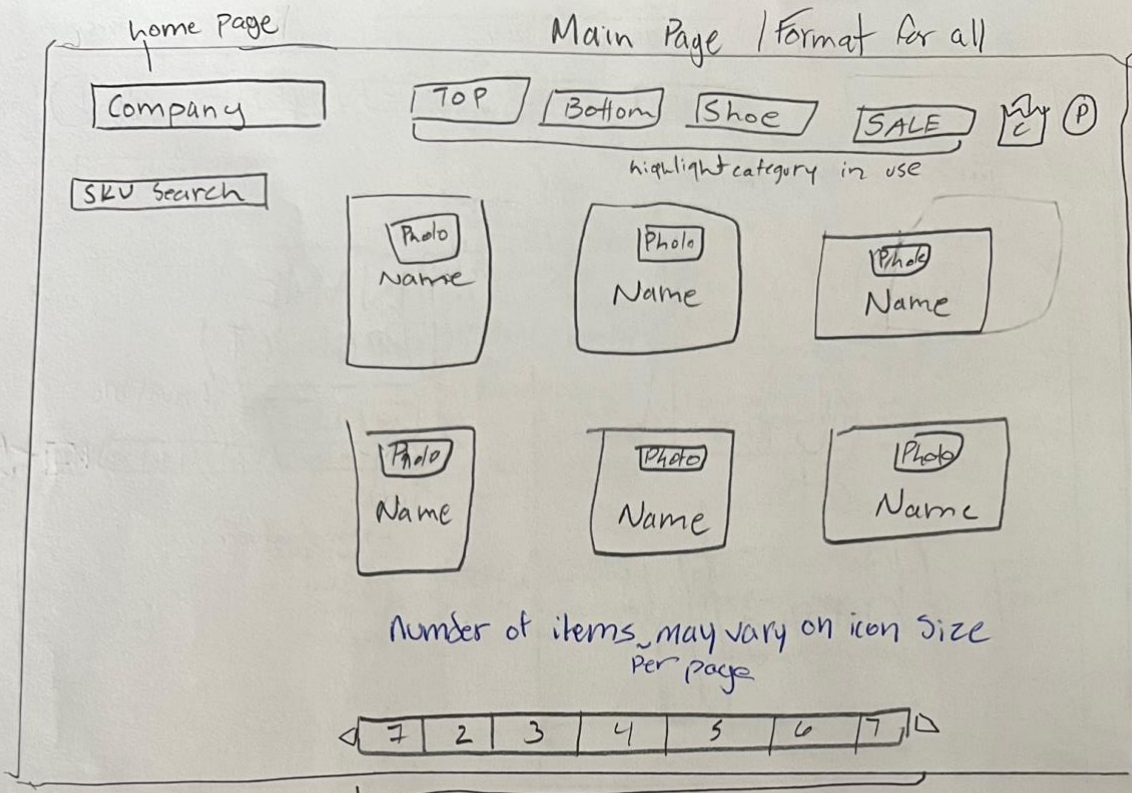 home page
Main Page / Format for all
Company
TOP
Bottom
Shoe
SALE
C
P
highlight category in use
SKU Search
Photo
Name
Photo
Name
Photo
Name
Photo
Name
Photo
Name
Photo
Name
Number of items may vary on icon size
Per page
1 2 3 4 5 6 7